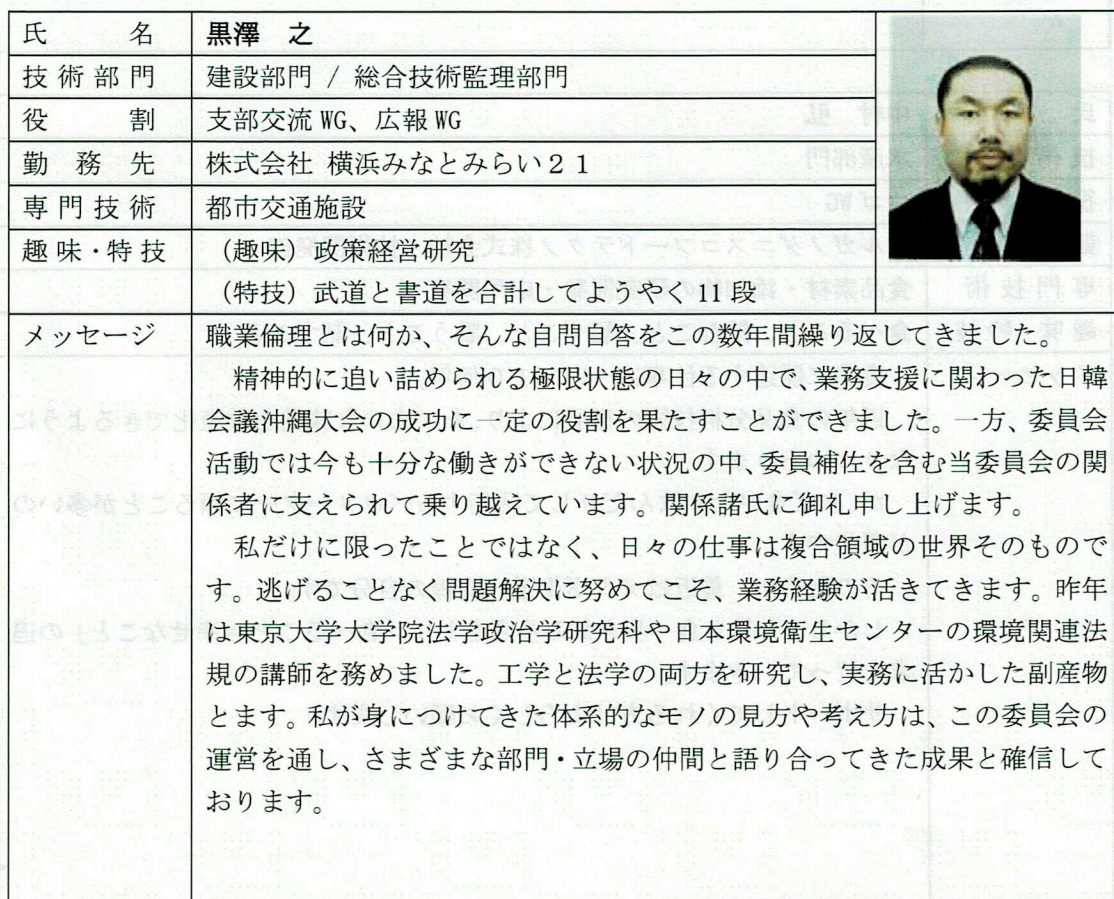 氏　　名　黒澤　之
技術部門　建設部門 / 総合技術監理部門
役　　割　支部交流 WG、広報 WG
勤 務 先　株式会社 横浜みなとみらい２１
専門技術　都市交通施設
趣味・特技　（趣味）政策経営研究
（特技）武道と書道を合計してようやく 11 段
メッセージ　職業倫理とは何か、そんな自問自答をこの数年間繰り返してきました。
精神的に追い詰められる極限状態の日々の中で、業務支援に関わった日韓
会議沖縄大会の成功に一定の役割を果たすことができました。一方、委員会
活動では今も十分な働きができない状況の中、委員補佐を含む当委員会の関
係者に支えられて乗り越えています。関係諸氏に御礼申し上げます。
私だけに限ったことではなく、日々の仕事は複合領域の世界そのもので
す。逃げることなく問題解決に努めてこそ、業務経験が活きてきます。昨年
は東京大学大学院法学政治学研究科や日本環境衛生センターの環境関連法
規の講師を務めました。工学と法学の両方を研究し、実務に活かした副産物
とます。私が身につけてきた体系的なモノの見方や考え方は、この委員会の
運営を通し、さまざまな部門・立場の仲間と語り合ってきた成果と確信して
おります。